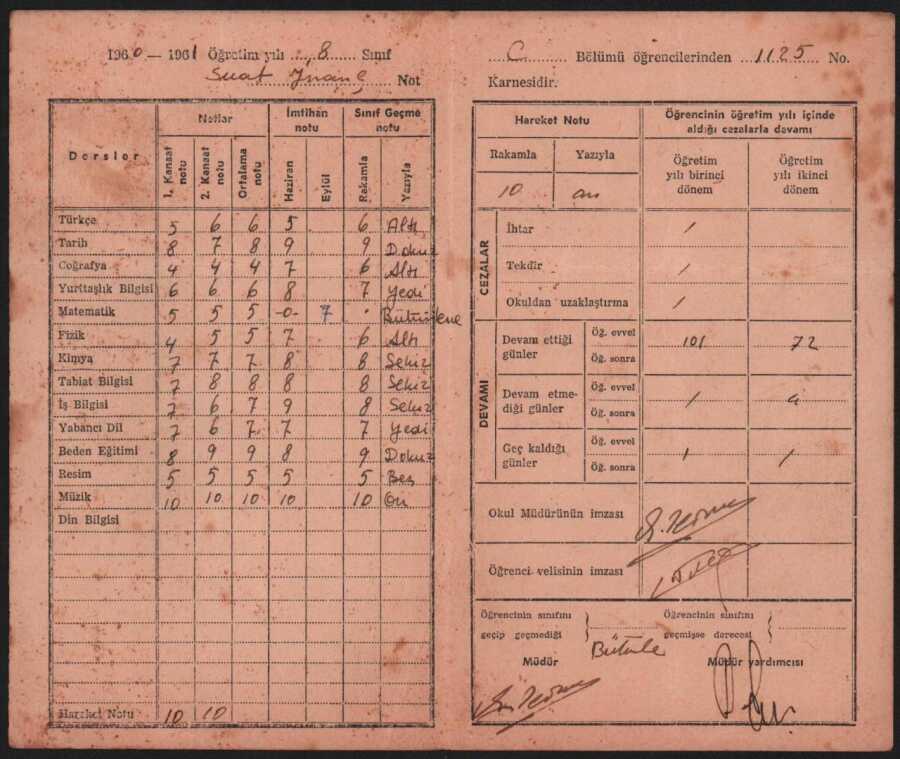 1960 — 1961 Öğretim yılı 8 Sınıf
Suat İnanç Not
Dersler Notlar İmtihan notu Sınıf Geçme notu
1. Kanaat notu 2. Kanaat notu Ortalama notu Haziran Eylül Rakamla Yazıyla
Türkçe 5 6 6 5 6 Altı
Tarih 8 7 8 9 9 Dokuz
Coğrafya 4 4 4 7 6 Altı
Yurttaşlık Bilgisi 6 6 6 8 7 Yedi
Matematik 5 5 5 -0- 7 Bütünleme
Fizik 4 5 5 7 6 Altı
Kimya 7 7 7 8 8 Sekiz
Tabiat Bilgisi 7 8 8 8 8 Sekiz
İş Bilgisi 7 6 7 9 8 Sekiz
Yabancı Dil 7 6 7 7 7 Yedi
Beden Eğitimi 8 9 9 8 9 Dokuz
Resim 5 5 5 5 5 Beş
Müzik 10 10 10 10 10 On
Din Bilgisi
Hareket Notu 10 10
C Bölümü öğrencilerinden 1125 No.
Karnesidir.
Hareket Notu Öğrencinin öğretim yılı içinde aldığı cezalarla devamı
Rakamla Yazıyla Öğretim yılı birinci dönem Öğretim yılı ikinci dönem
10 on
CEZALAR
İhtar /
Tekdir /
Okuldan uzaklaştırma /
DEVAMI
Devam ettiği günler Öğ. evvel Öğ. sonra 101 72
Devam etmediği günler Öğ. evvel Öğ. sonra /
Geç kaldığı günler Öğ. evvel Öğ. sonra / /
Okul Müdürünün imzası
Öğrenci velisinin imzası
Öğrencinin sınıfını geçip geçmediği } Öğrencinin sınıfını geçmişse derecesi }
Bütünle
Müdür Müdür yardımcısı